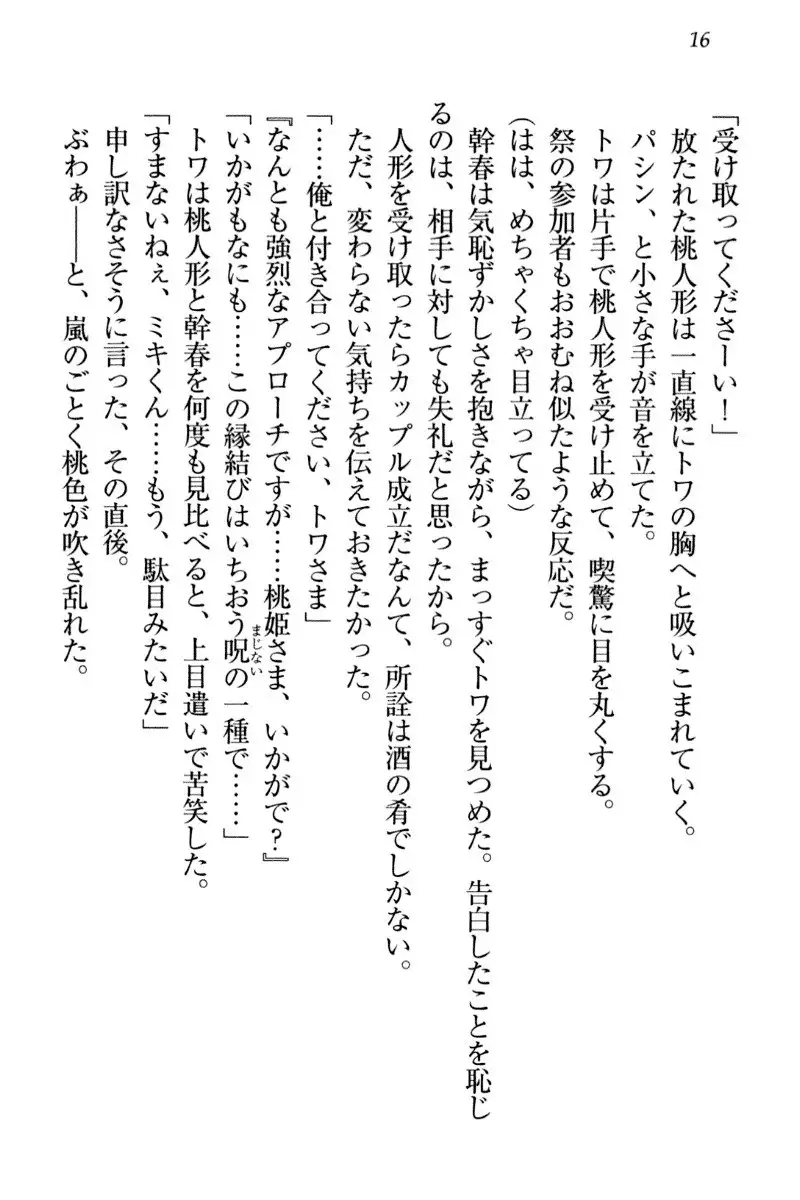 16
「受け取ってくださーい！」
放たれた桃人形は一直線にトワの胸へと吸いこまれていく。
パシン、と小さな手が音を立てた。
トワは片手で桃人形を受け止めて、喫驚に目を丸くする。
祭の参加者もおおむね似たような反応だ。
(はは、めちゃくちゃ目立ってる)
幹春は気恥ずかしさを抱きながら、まっすぐトワを見つめた。告白したことを恥じ
るのは、相手に対しても失礼だと思ったから。
人形を受け取ったらカップル成立だなんて、所詮は酒の肴でしかない。
ただ、変わらない気持ちを伝えておきたかった。
「……俺と付き合ってください、トワさま」
『なんとも強烈なアプローチですが……桃姫さま、いかがで？』
「いかがもなにも……この縁結びはいちおう呪の一種で……」
まじない
トワは桃人形と幹春を何度も見比べると、上目遣いで苦笑した。
「すまないねぇ、ミキくん……もう、駄目みたいだ」
申し訳なさそうに言った、その直後。
ぶわぁ――と、嵐のごとく桃色が吹き乱れた。